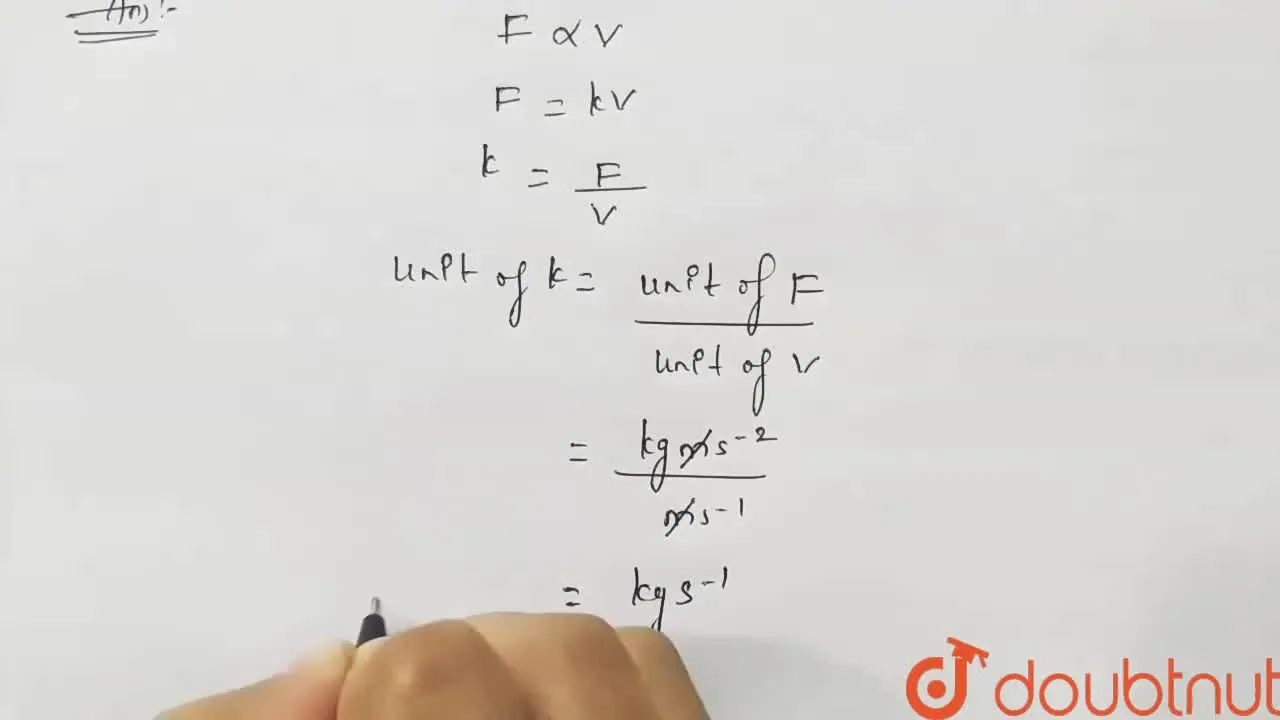 Ans:-
F ∝ V
F = kV
k = F/V
unit of k = unit of F / unit of V
= kg m s-2 / m s-1
= kg s-1
doubtnut